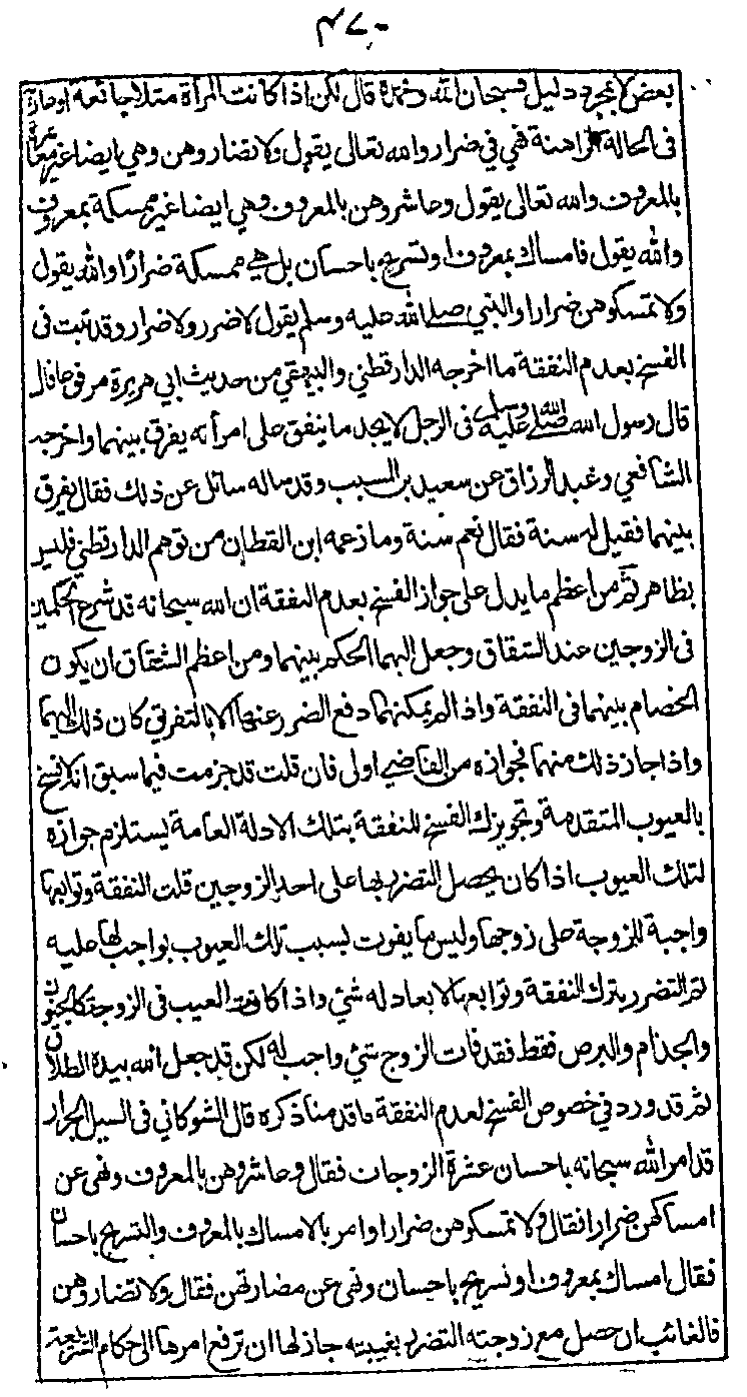 ٤٧٠
بعض لا بمجرد دليل فسبحان الله وبحمده قال لكن اذا كانت المرأة مثلا جائعة او عارية
فى الحالة الراهنة فهي في ضرار والله تعالى يقول ولا تضاروهن وهي ايضا غير معاشرة
بالمعروف والله تعالى يقول وعاشروهن بالمعروف وهي ايضا غير ممسكة بمعروف
والله يقول فامساك بمعروف او تسريح باحسان بل هي ممسكة ضرارا والله يقول
ولا تمسكوهن ضرارا والنبي صلى الله عليه وسلم يقول لا ضرر ولا ضرار وقد ثبت فى
الفسخ بعدم النفقة ما اخرجه الدارقطني والبيهقي من حديث ابي هريرة مرفوعا قال
قال رسول الله صلى الله عليه وسلم فى الرجل لا يجد ما ينفق على امرأته يفرق بينهما واخرجه
الشافعي وعبد الرزاق عن سعيد بن المسيب وقد ساله سائل عن ذلك فقال يفرق
بينهما فقيل له سنة فقال نعم سنة وما زعمه ابن القطان من توهم الدارقطني فليس
بظاهر ثم من اعظم ما يدل على جواز الفسخ بعدم النفقة ان الله سبحانه قد شرع الحكمين
فى الزوجين عند الشقاق وجعل اليهما الحكم بينهما ومن اعظم الشقاق ان يكون
الخصام بينهما فى النفقة واذا لم يمكنهما دفع الضرر عنها الا بالتفريق كان ذلك اليهما
واذا جاز ذلك منهما فجوازه من القاضي اولى فان قلت قد جزمت فيما سبق انه لا فسخ
بالعيوب المتقدمة وتجويزك الفسخ للنفقة بتلك الادلة العامة يستلزم جوازه
لتلك العيوب اذا كان يحصل التضرر بها على احد الزوجين قلت النفقة وتوابعها
واجبة للزوجة على زوجها وليس ما يفوت بسبب تلك العيوب بواجب لها عليه
ثم التضرر بترك النفقة وتوابعها لا يعادله شئ واذا كانت العيب فى الزوجة كالجنون
والجذام والبرص فقط فقد فات الزوج شئ واجب له لكن قد جعل الله بيده الطلاق
ثم قد ورد في خصوص الفسخ لعدم النفقة ما قدمنا ذكره قال الشوكاني فى السيل الجرار
قد امر الله سبحانه باحسان عشرة الزوجات فقال وعاشروهن بالمعروف ونهى عن
امساكهن ضرارا فقال ولا تمسكوهن ضرارا وامر بالامساك بالمعروف والتسريح باحسان
فقال امساك بمعروف او تسريح باحسان ونهى عن مضارتهن فقال ولا تضاروهن
فالغائب ان حصل مع زوجته التضرر بغيبته جاز لها ان ترفع امرها الى حكام الشريعة